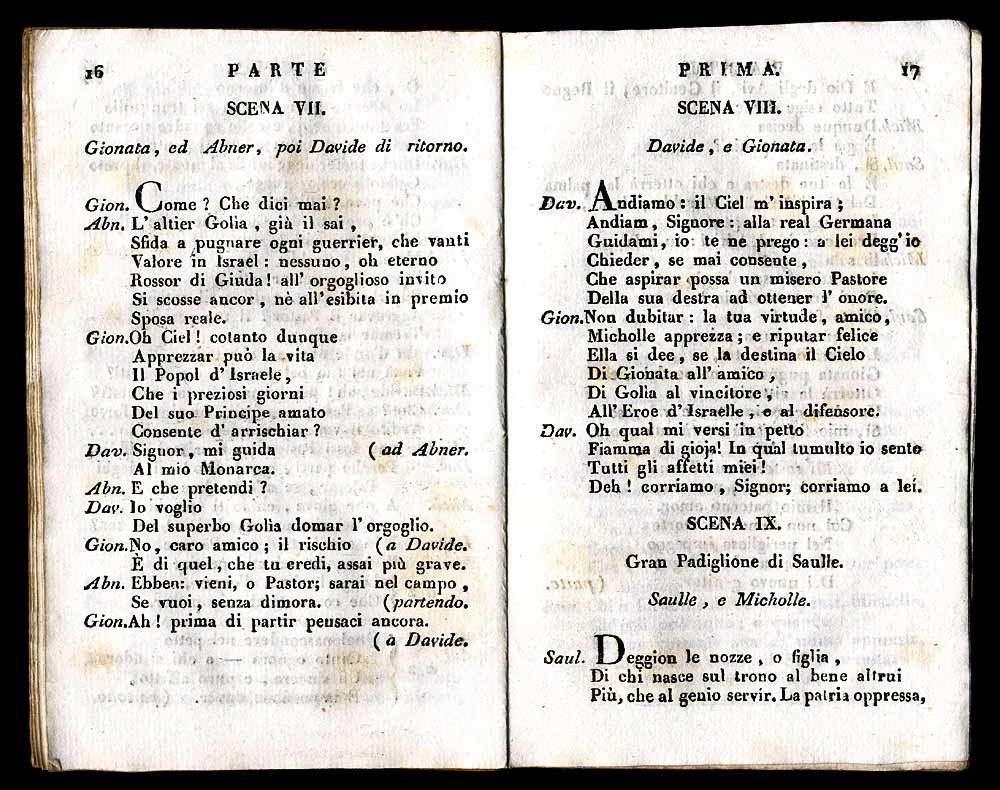 16 PARTE
SCENA VII.
Gionata, ed Abner, poi Davide di ritorno.
Gion. Come ? Che dici mai ?
Abn. L' altier Golìa , già il sai ,
Sfida a pugnare ogni guerrier, che vanti
Valore in Israel : nessuno, oh eterno
Rossor di Giuda ! all' orgoglioso invito
Si scosse ancor , nè all' esibita in premio
Sposa reale.
Gion. Oh Ciel ! cotanto dunque
Apprezzar può la vita
Il Popol d' Israele ,
Che i preziosi giorni
Del suo Principe amato
Consente d' arrischiar ?
Dav. Signor , mi guida ( ad Abner.
Al mio Monarca.
Abn. E che pretendi ?
Dav. Io voglio
Del superbo Golìa domar l' orgoglio.
Gion. No, caro amico ; il rischio ( a Davide.
È di quel , che tu credi, assai più grave.
Abn. Ebben: vieni, o Pastor; sarai nel campo ,
Se vuoi , senza dimora. ( partendo.
Gion. Ah ! prima di partir pensaci ancora.
( à Davide.
PRIMA. 17
SCENA VIII.
Davide , e Gionata.
Dav. Andiamo : il Ciel m' inspira ;
Andiam , Signore : alla real Germana
Guidami, io te ne prego : a lei degg' io
Chieder , se mai consente ,
Che aspirar possa un misero Pastore
Della sua destra ad ottener l' onore.
Gion. Non dubitar : la tua virtude , amico,
Micholle apprezza ; e riputar felice
Ella si dee , se la destina il Cielo
Di Gionata all' amico ,
Di Golìa al vincitore ,
All' Eroe d' Israelle , e al difensore.
Dav. Oh qual mi versi in petto
Fiamma di gioja! In qual tumulto io sento
Tutti gli affetti miei !
Deh ! corriamo , Signor; corriamo a lei.
SCENA IX.
Gran Padiglione di Saulle.
Saulle , e Micholle.
Saul. Deggion le nozze , o figlia ,
Di chi nasce sul trono al bene altrui
Più, che al genio servir. La patria oppressa,